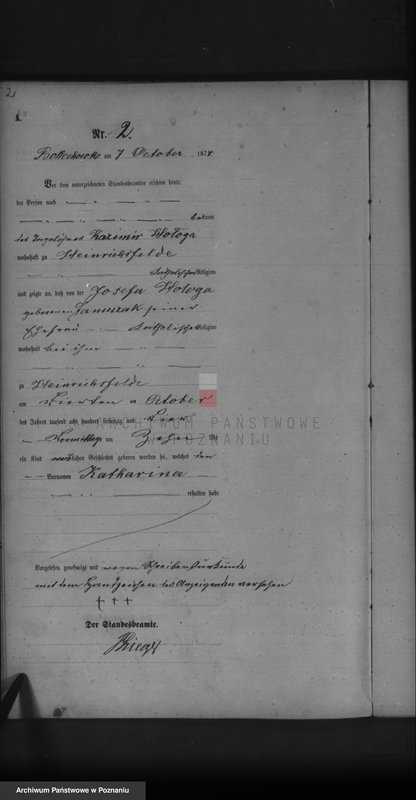 21
A.
Nr. 2.
am 7 October 1874
Vor dem unterzeichneten Standesbeamten erschien heute,
der Person nach
bekannt
Kazimir Wologa
wohnhaft zu Heinrichsfelde
katholischer Religion
und zeigte an, daß von der Josefa Wologa
geborenen Januszak seiner
Ehefrau katholischer Religion
wohnhaft bei ihm
zu Heinrichsfelde
am Vierten October
des Jahres tausend acht hundert siebenzig und Vier
Vormittags um Zehn Uhr
ein Kind weiblichen Geschlechts geboren worden sei, welches den
Vornamen Katharina
erhalten habe
Vorgelesen, genehmigt und wegen Schreibensunkunde
mit dem Handzeichen des Anzeigenden versehen
† † †
Der Standesbeamte.
ARCHIWUM PAŃSTWOWE
W POZNANIU
Archiwum Państwowe w Poznaniu